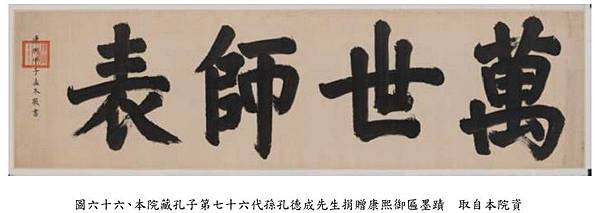 萬世師表
康熙甲子孟冬敬書
圖六十六、本院藏孔子第七十六代孫孔德成先生捐贈康熙御匾墨蹟 取自本院資